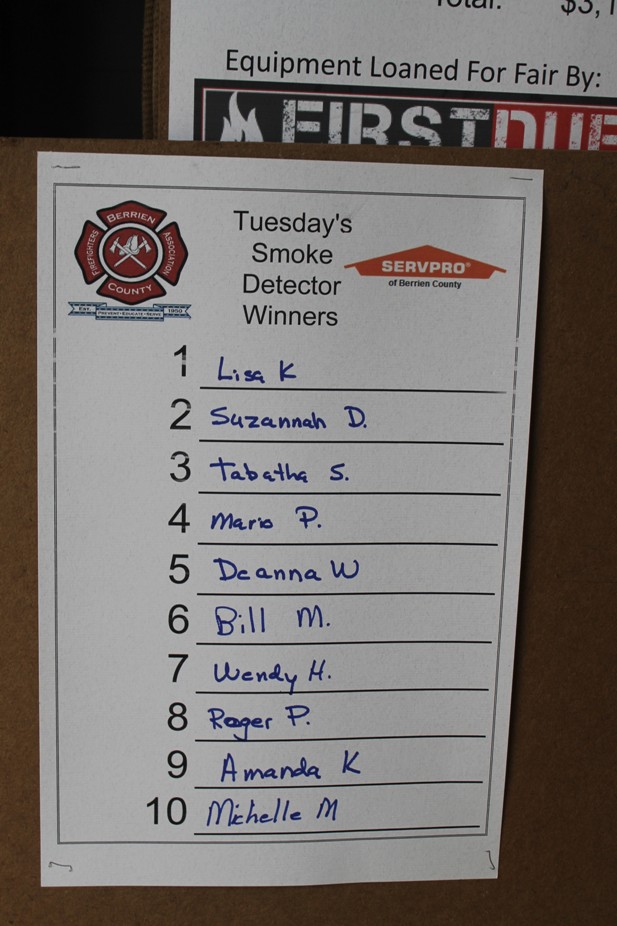 Total: $3,1
Equipment Loaned For Fair By:
FIRSTDUE
BERRIEN
FIREFIGHTERS
ASSOCIATION
COUNTY
EST. PREVENT-EDUCATE-BEING 1950
Tuesday's
Smoke
Detector
Winners
SERVPRO®
of Berrien County
1 Lisa K
2 Suzannah D.
3 Tabatha S.
4 Mario P.
5 Deanna W
6 Bill M.
7 Wendy H.
8 Roger P.
9 Amanda K
10 Michelle M